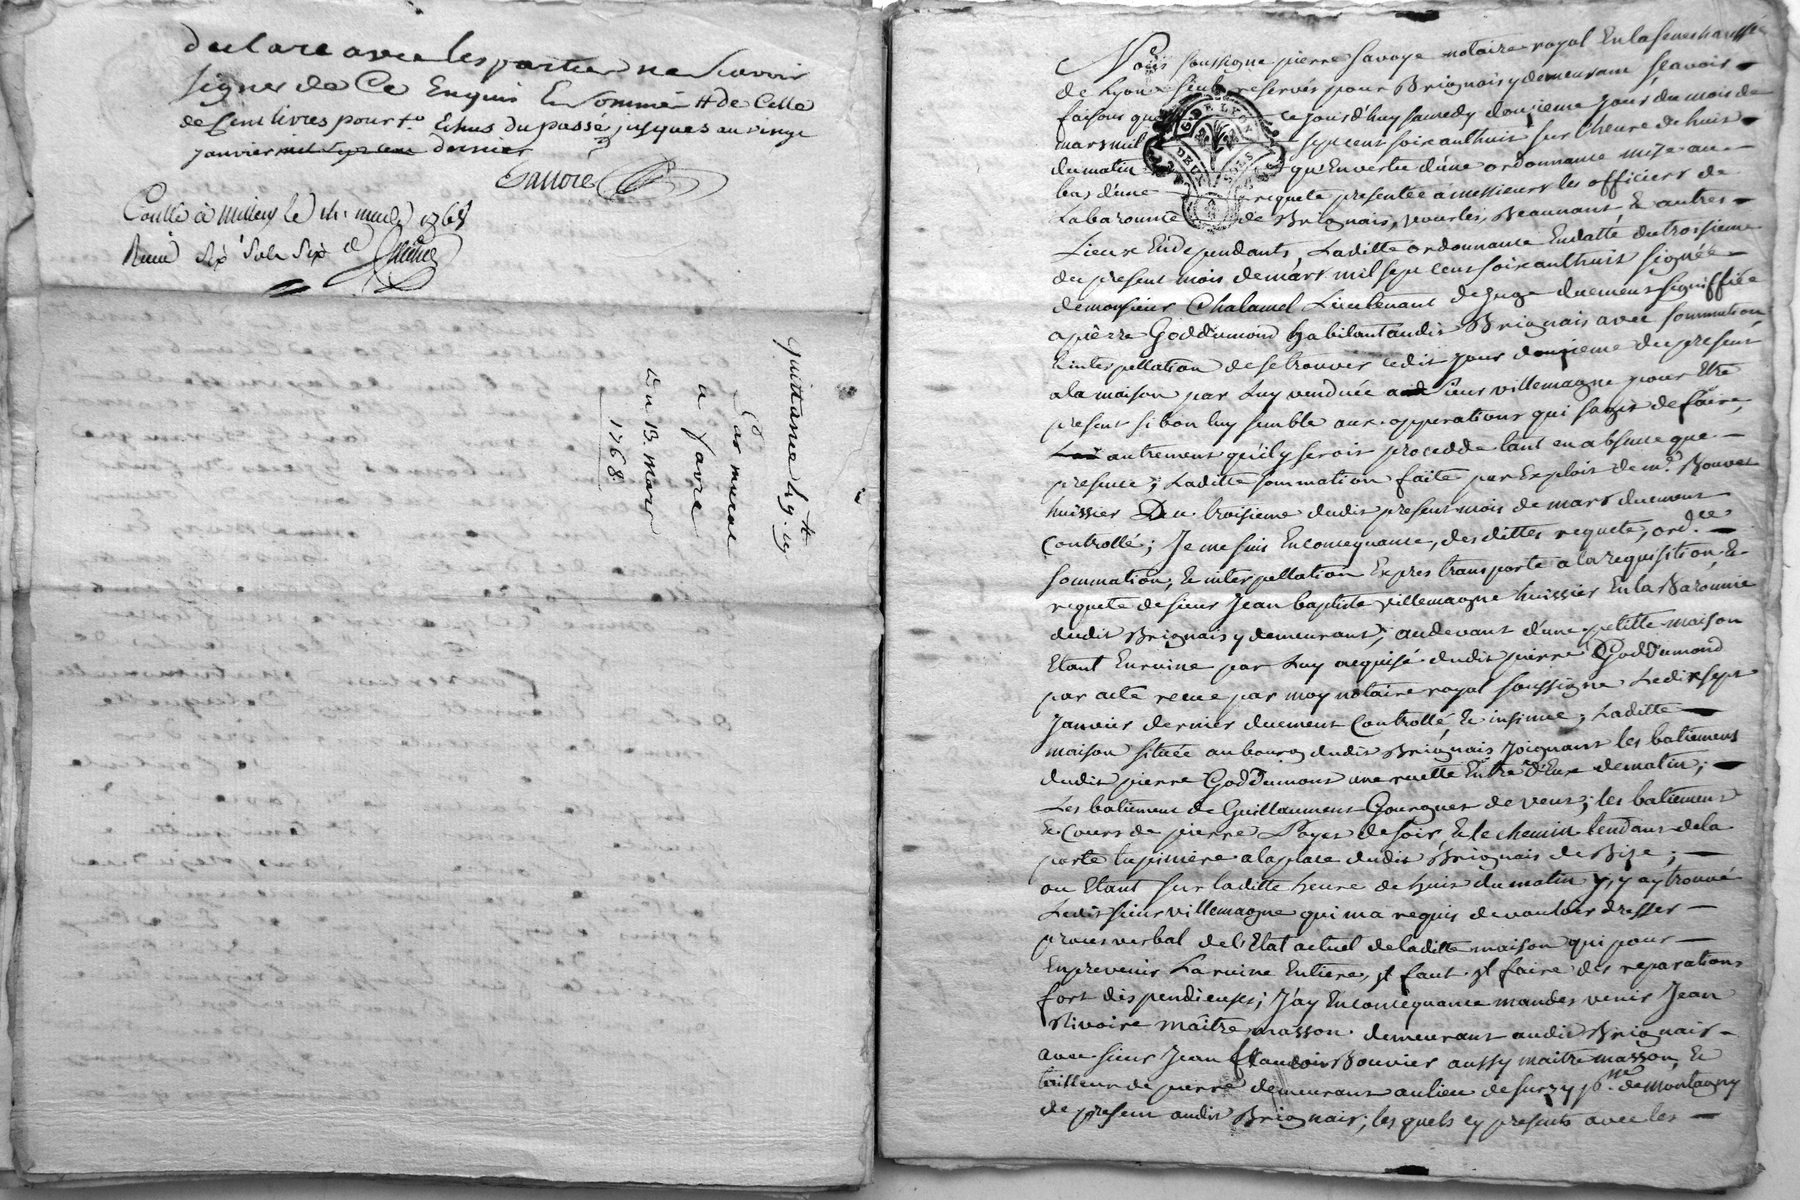 declare avec les parties ne Scavoir
signer de Ce Enquis Et Sommés # de Celle
de Cent livres pour
Echus du passé jusques au vingt
janvier mil sept cent dernier
Savoie
Conllé à Millery le mars 1768
Reçu six Sols six d
quittance 49 # 19
Par mucat
a favre
Du 13. Mars
1768.
Nous soussigné pierre Savoye notaire royal En la Seneschaussée
de Lyon Seul reservés pour Brignais y demeurant scavoir
faisons que ce jourd'huy samedy douzieme jour du mois de
mars mil sept cent soixante huit sur l'heure de huit
du matin qu'En vertu d'une ordonnance mise au
bas d'une requete presentée a messieurs les officiers de
La baronnie de Brignais, Vourles, Beaunant & autres
Lieux Endependants, Laditte ordonnance En datte du troisieme
du present mois de mars mil sept cent soixante huit signée
de monsieur Chalamel Lieutenant de juge duement signiffiée
a pierre Goddumond habitant audit Brignais avec sommation
& interpellation de se trouver cedit jour douzieme du present
a la maison par Luy vendüe au Sieur villemagne pour Etre
present si bon luy semble aux opperations qui s'agit de faire,
autrement qu'il y seroit procedde tant en absence que
presence; Laditte sommation faite par Exploit de me. Bouvet
huissier Du troisieme dudit present mois de mars duement
Controllé; Je me suis En consequance, des dittes requete, ord.ce
sommation, & interpellation Expres transporté a la requisition &
requete de sieur Jean baptiste villemagne huissier En la Baronnie
dudit Brignais y demeurant; au devant d'une petitte maison
Etant En ruine par Luy acquise dudit pierre GodDumond
par acte receue par moy notaire royal soussigné Le dix sept
Janvier dernier duement Controllé, & insinué; Laditte
maison située au bourg dudit Brignais joignant les batiments
dudit pierre GodDumont une ruette Entre d'Eux de matin;
Les batiment de Guillaument Gourguet de vent; les batiment
& Cours de pierre Poyet de soir, & le chemin tendant de la
porte lupiniere a la place dudit Brignais de Bize;
ou Etant sur laditte heure de huit du matin y, y ay trouvé
Ledit sieur villemagne qui ma requis de vouloir dresser
proces verbal de l'Etat actuel de laditte maison qui pour
En prevenir La ruine Entiere, jl faut jl faire des reparations
fort dispendieuses; J'ay En consequance mandés venir Jean
Rivoire maitre masson demeurant audit Brignais
avec sieur Jean Bouvier aussy maitre masson &
tailleur de pierre demeurant au lieu de surzy de montagny
de present audit Brignais; lesquels cy presents avec les
G. DE LYON
DEUX SOLS